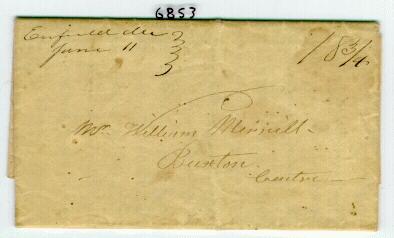 6853
Enfield Me
June 11
18 3/4
Mr William Merrill
Buxton
Centre